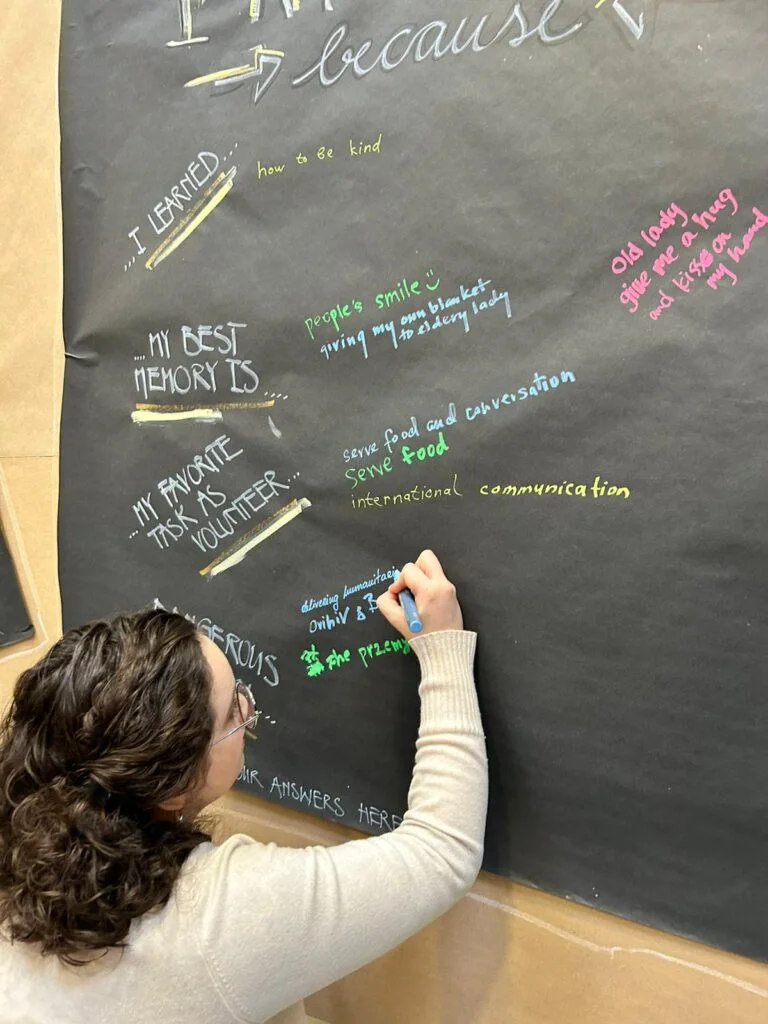 because
...I LEARNED...
how to be kind
Old lady
give me a hug
and kiss on
my hand
...MY BEST
MEMORY IS...
people's smile
giving my own blanket
to eldery lady
...MY FAVORITE
TASK AS
VOLUNTEER...
serve food and conversation
Serve food
international communication
delivering
Orihiv &
the
ANSWERS HERE